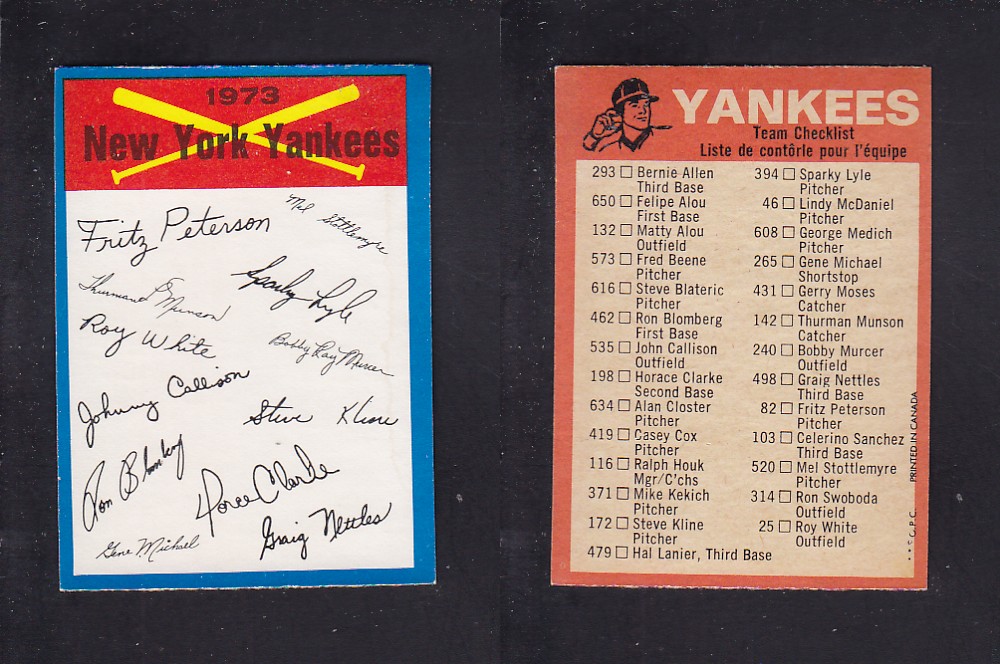 1973
New York Yankees
Fritz Peterson
Mel Stottlemyre
Thurman Munson
Sparky Lyle
Roy White
Bobby Ray Murcer
Johnny Callison
Steve Kline
Ron Blomberg
Horace Clarke
Graig Nettles
Gene Michael
YANKEES
Team Checklist
Liste de contôrle pour l'équipe
293 Bernie Allen
Third Base
650 Felipe Alou
First Base
132 Matty Alou
Outfield
573 Fred Beene
Pitcher
616 Steve Blateric
Pitcher
462 Ron Blomberg
First Base
535 John Callison
Outfield
198 Horace Clarke
Second Base
634 Alan Closter
Pitcher
419 Casey Cox
Pitcher
116 Ralph Houk
Mgr/C'chs
371 Mike Kekich
Pitcher
172 Steve Kline
Pitcher
479 Hal Lanier, Third Base
394 Sparky Lyle
Pitcher
46 Lindy McDaniel
Pitcher
608 George Medich
Pitcher
265 Gene Michael
Shortstop
431 Gerry Moses
Catcher
142 Thurman Munson
Catcher
240 Bobby Murcer
Outfield
498 Graig Nettles
Third Base
82 Fritz Peterson
Pitcher
103 Celerino Sanchez
Third Base
520 Mel Stottlemyre
Pitcher
314 Ron Swoboda
Outfield
25 Roy White
Outfield
©O.P.C. PRINTED IN CANADA